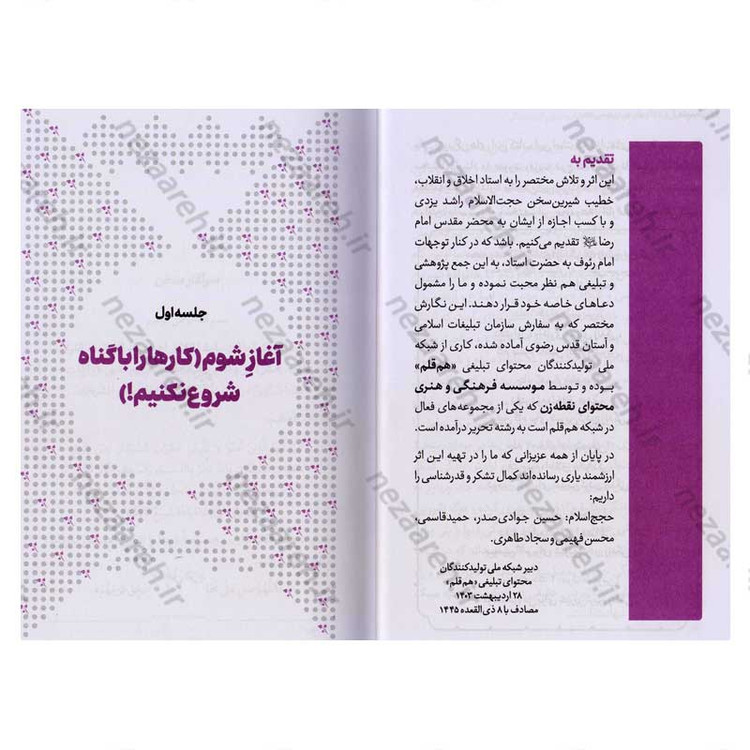 تقدیم به
این اثر و تلاش مختصر را به استاد اخلاق و انقلاب،
خطیب شیرین‌سخن حجت‌الاسلام راشد یزدی
و با کسب اجازه از ایشان به محضر مقدس امام
رضا تقدیم می‌کنیم. باشد که در کنار توجهات
امام رئوف به حضرت استاد، به این جمع پژوهشی
و تبلیغی هم نظر محبت نموده و ما را مشمول
دعاهای خاصه خود قرار دهند. این نگارش
مختصر که به سفارش سازمان تبلیغات اسلامی
و آستان قدس رضوی آماده شده، کاری از شبکه
ملی تولیدکنندگان محتوای تبلیغی «هم‌قلم»
بوده و توسط موسسه فرهنگی و هنری
محتوای نقطه‌زن که یکی از مجموعه‌های فعال
در شبکه هم‌قلم است به رشته تحریر درآمده است.
در پایان از همه عزیزانی که ما را در تهیه این اثر
ارزشمند یاری رسانده‌اند کمال تشکر و قدرشناسی را
داریم:
حجج‌اسلام: حسین جوادی‌صدر، حمید قاسمی،
محسن فهیمی و سجاد طاهری.
دبیر شبکه ملی تولیدکنندگان
محتوای تبلیغی «هم‌قلم»
۲۸ اردیبهشت ۱۴۰۳
مصادف با ۸ ذی‌القعده ۱۴۴۵
جلسه اول
آغازِ شوم (کارها را با گناه
شروع نکنیم!)
nezaareh.ir
nezaareh.ir
nezaareh.ir
nezaareh.ir
nezaareh.ir
nezaareh.ir